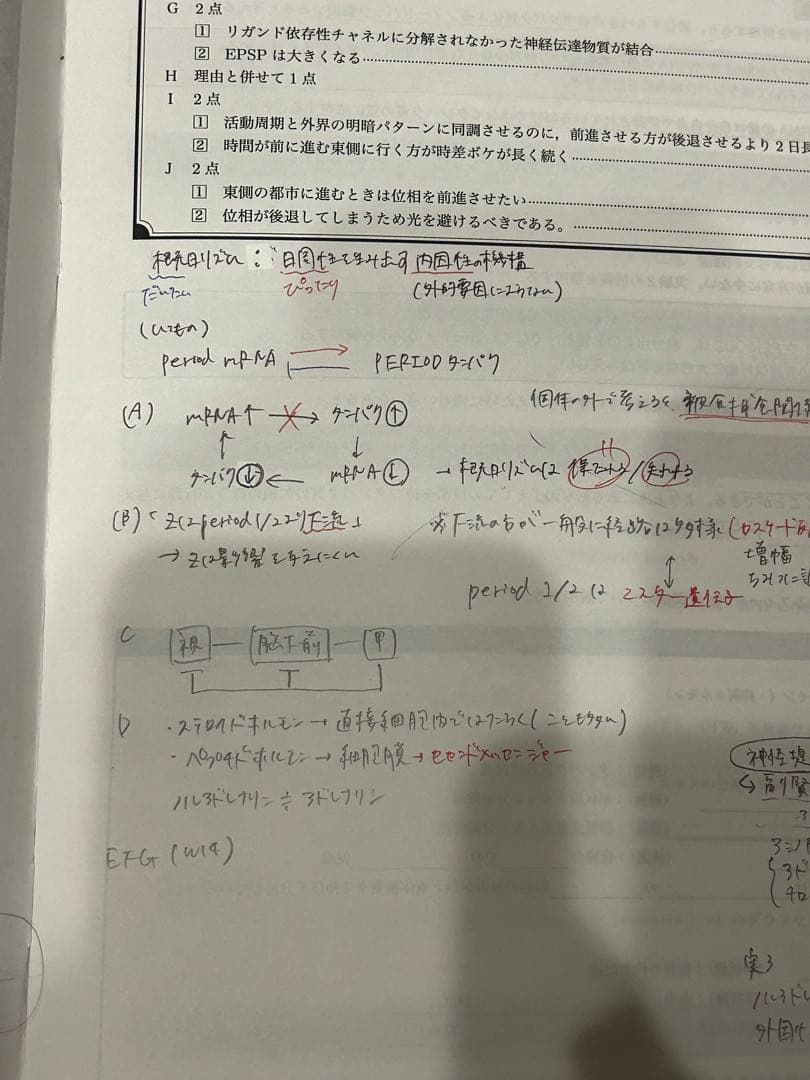 G 2点
1 リガンド依存性チャネルに分解されなかった神経伝達物質が結合
2 EPSP は大きくなる
H 理由と併せて1点
I 2点
1 活動周期と外界の明暗パターンに同調させるのに，前進させる方が後退させるより2日長
2 時間が前に進む東側に行く方が時差ボケが長く続く
J 2点
1 東側の都市に進むときは位相を前進させたい
2 位相が後退してしまうため光を避けるべきである。
概日リズム： 日周性を生み出す内因性の機構
だいたい ぴったり (外的要因によらない)
(いてもの)
period mRNA PERIODタンパク
(A) mRNA↑ → タンパク↑
個体の外で考えると、
タンパク↓ ← mRNA↓ → 概日リズムは 保たれる/失われる
(B)「Zはperiod1/2の下流」
※下流の方が一般に経路は多様
→ Zは影響を与えにくい
増幅
period 1/2は マスター遺伝子
C 視 — 脳下前 — 甲
D ・ステロイドホルモン→直接細胞内ではたらく(ことも多い)
・ペプチドホルモン→細胞膜→セカンドメッセンジャー
ノルアドレナリン≒アドレナリン
神経堤
EFG (w14)
実3